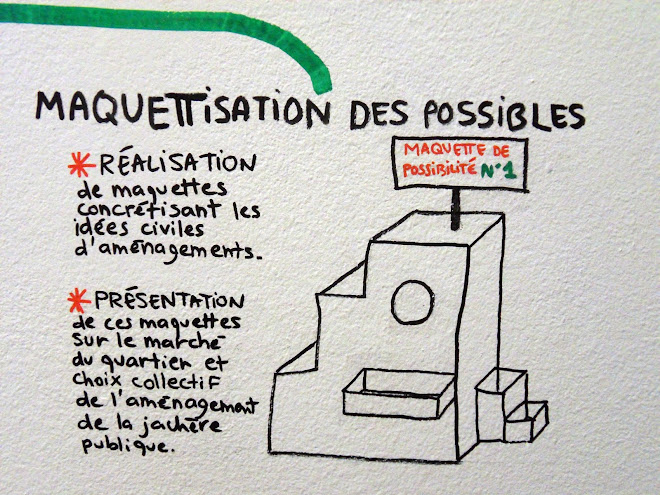 MAQUETTISATION DES POSSIBLES
MAQUETTE DE
POSSIBILITÉ N°1
* RÉALISATION
de maquettes
concrétisant les
idées civiles
d'aménagements.
* PRÉSENTATION
de ces maquettes
sur le marché
du quartier et
choix collectif
de l'aménagement
de la jachère
publique.